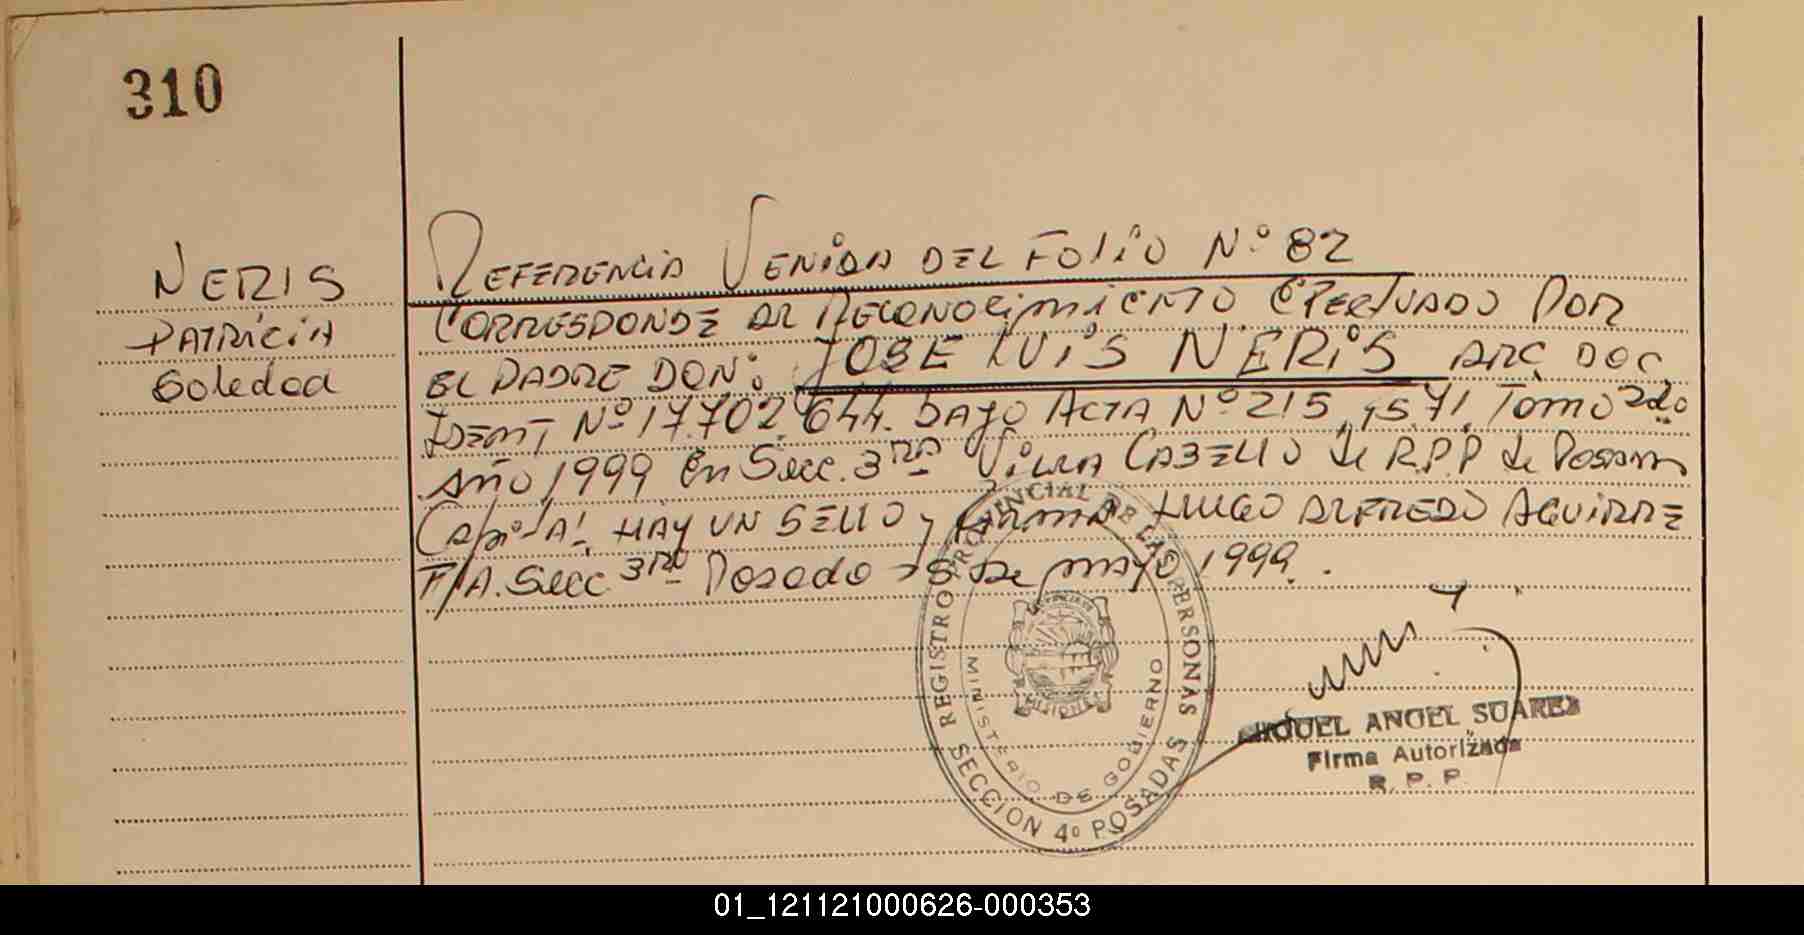 310
NERIS
PATRICIA
Soledad
REFERENCIA VENIDA DEL FOLIO Nº 82
CORRESPONDE AL RECONOCIMIENTO EFECTUADO POR
EL PADRE DON: JOSE LUIS NERIS ARG. DOC
IDENT Nº 17.702.644. BAJO ACTA Nº 215, 71, TOMO 2do
AÑO 1999 En Secc. 3RA VILLA CABELLO de R.P.P de Posadas
Capital. HAY UN SELLO y firma HUGO ALFREDO AGUIRRE
F/A. Secc. 3RA Posadas de mayo 1999.
REGISTRO PROVINCIAL DE LAS PERSONAS
SECCION 4º POSADAS
MINISTERIO DE GOBIERNO
MISIONES
MIGUEL ANGEL SUAREZ
Firma Autorizada
R. P. P.
01_121121000626-000353